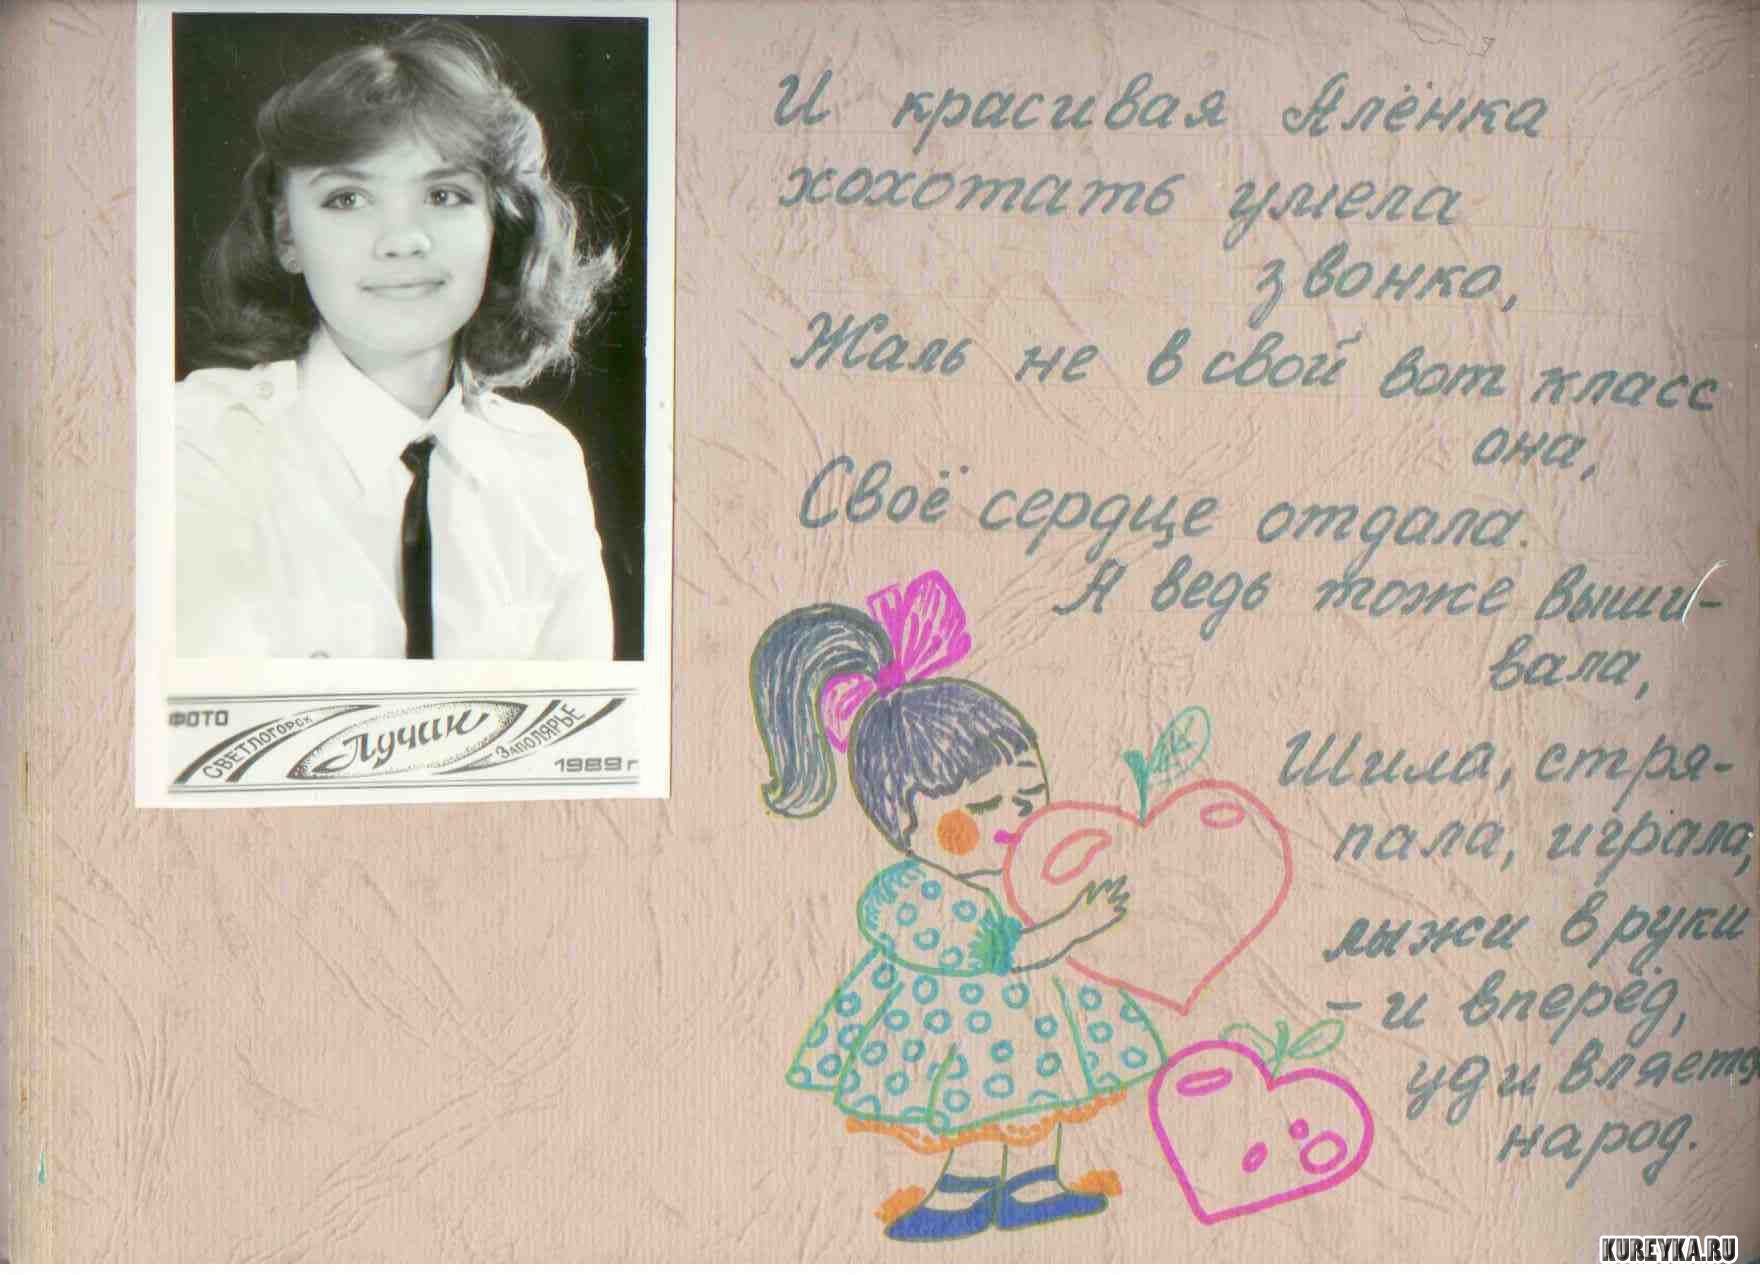 И красивая Алёнка
хохотать умела
звонко,
Жаль не в свой вот класс
она,
Своё сердце отдала.
А ведь тоже выши-
вала,
Шила, стря-
пала, играла,
лыжи в руки
- и вперёд,
удивляется
народ.
ФОТО
СВЕТЛОГОРСК
Лучик
ЗАПОЛЯРЬЕ
1989г
KUREYKA.RU